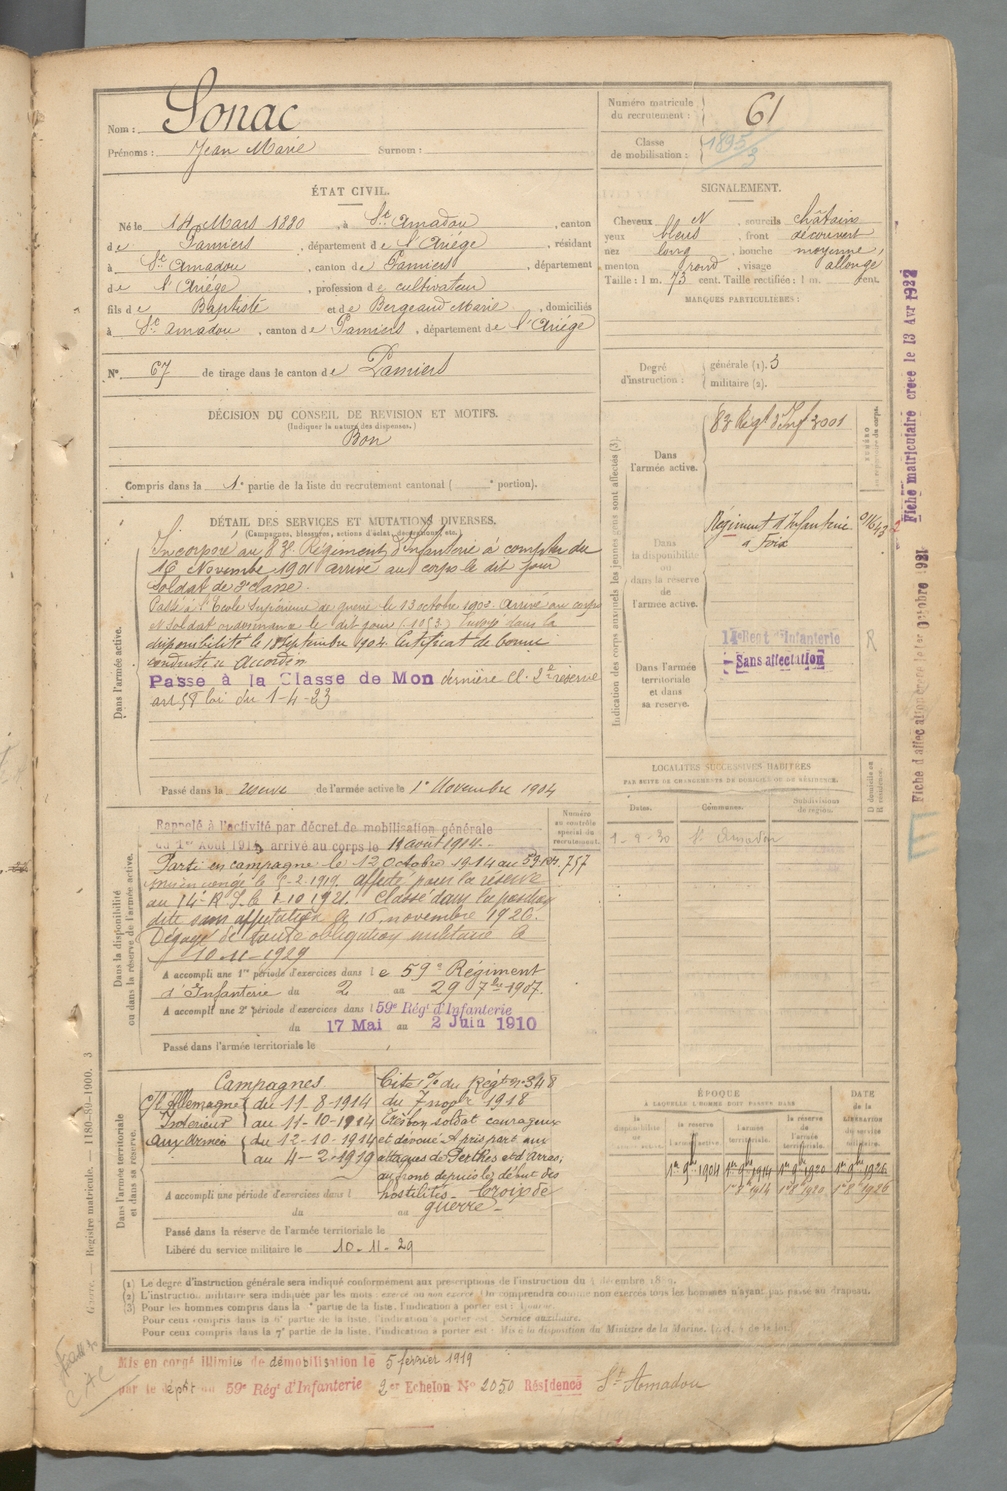 Nom : Sonac
Prénoms : Jean Marie Surnom :
Numéro matricule du recrutement : 61
Classe de mobilisation : 1895/3
ÉTAT CIVIL.
Né le 14 Mars 1880, à St Amadou, canton
de Pamiers, département de l'Ariége, résidant
à St Amadou, canton de Pamiers, département
de l'Ariége, profession de cultivateur
fils de Baptiste et de Bergeaud Marie, domiciliés
à St Amadou, canton de Pamiers, département de l'Ariége
N° 67 de tirage dans le canton de Pamiers
SIGNALEMENT.
Cheveux N, sourcils châtains
yeux bleus, front découvert
nez long, bouche moyenne,
menton rond, visage allongé
Taille : 1 m. 73 cent. Taille rectifiée : 1 m. cent.
MARQUES PARTICULIÈRES :
Degré d'instruction : générale (1). 3
militaire (2).
DÉCISION DU CONSEIL DE REVISION ET MOTIFS.
(Indiquer la nature des dispenses.)
Bon
Compris dans la 1e partie de la liste du recrutement cantonal ( e portion).
DÉTAIL DES SERVICES ET MUTATIONS DIVERSES.
(Campagnes, blessures, actions d'éclat, décorations, etc.)
Dans l'armée active.
Incorporé au 83e Régiment d'Infanterie à compter du
16 Novembre 1901 arrivé au corps le dit jour
soldat de 2e classe.
Passé à l'Ecole Supérieure de guerre le 13 octobre 1903. Arrivé au corps
et soldat ordonnance le dit jour. Envoyé dans la
disponibilité le 18 Septembre 1904. Certificat de bonne
conduite accordé.
Passé à la Classe de Mon dernière cl. 2e réserve
art 58 loi du 1-4-23
Passé dans la réserve de l'armée active le 1er Novembre 1904
Indication des corps auxquels les jeunes gens sont affectés (3).
Dans l'armée active.
83 Régt d'Inf 2001
NUMÉRO au répertoire du corps.
Dans la disponibilité ou dans la réserve de l'armée active.
Régiment d'Infanterie
à Foix
Dans l'armée territoriale et dans sa réserve.
14e Regt d'Infanterie
Sans affectation
R
Fiche matriculaire créée le 13 Avr 1922
Fiche d'affectation créée le 1er Octobre 1921
LOCALITÉS SUCCESSIVES HABITÉES
PAR SUITE DE CHANGEMENTS DE DOMICILE OU DE RÉSIDENCE.
D domicile ou R résidence.
Dates. Communes. Subdivisions de région.
1-9-30 St Amadou
Dans la disponibilité ou dans la réserve de l'armée active.
Rappelé à l'activité par décret de mobilisation générale
du 1er Août 1914, arrivé au corps le 11 août 1914.
Numéro au contrôle spécial du recrutement.
757
Parti en campagne le 12 Octobre 1914 au 59 RI.
Mis en congé le 5-2-1919. affecté pour la réserve
au 14e R.I. le 1-10-1921. Classé dans la position
dite sans affectation le 15 novembre 1926.
Dégagé de toute obligation militaire le
10-11-1929
A accompli une 1re période d'exercices dans le 59e Régiment
d'Infanterie du 2 au 29 7bre 1907.
A accompli une 2e période d'exercices dans l 59e Régt d'Infanterie
du 17 Mai au 2 Juin 1910
Passé dans l'armée territoriale le
Dans l'armée territoriale et dans sa réserve.
Campagnes
C/re Allemagne
Intérieur
aux Armées
du 11-8-1914
au 11-10-1914
du 12-10-1914
au 4-2-1919
Cité o/o du Régt n° 348
du 7 nov 1918
Très bon soldat courageux
et dévoué. A pris part aux
attaques de Perthes et d'Arras;
au front depuis le début des
hostilités. Croix de
guerre
A accompli une période d'exercices dans l
du au
Passé dans la réserve de l'armée territoriale le
Libéré du service militaire le 10-11-29
ÉPOQUE
À LAQUELLE L'HOMME DOIT PASSER DANS
la disponibilité la réserve de l'armée active. l'armée territoriale. la réserve de l'armée territoriale.
DATE de la LIBÉRATION du service militaire.
1er 9bre 1904 1er 9bre 1914 1er 9bre 1920 1er 9bre 1926
1er 8 1914 1er 8 1920 1er 8 1926
(1) Le degré d'instruction générale sera indiqué conformément aux prescriptions de l'instruction du décembre
(2) L'instruction militaire sera indiquée par les mots : exercé ou non exercé. On comprendra comme non exercés tous les hommes n'ayant pas passé au drapeau.
(3) Pour les hommes compris dans la partie de la liste, l'indication à porter est : Ajourné.
Pour ceux compris dans la 6e partie de la liste, l'indication à porter est : Service auxiliaire.
Pour ceux compris dans la 7e partie de la liste, l'indication à porter est : Mis à la disposition du Ministre de la Marine.
Guerre. — Registre matricule. — 1180-80-1900. 3
Mis en congé illimité de démobilisation le 5 fevrier 1919
par le dépôt du 59e Régt d'Infanterie 2er Echelon No 2050 Résidence St Amadou